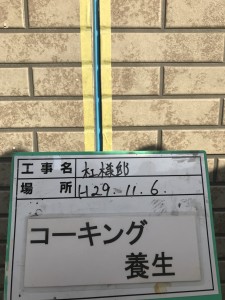 工事名 杠様邸
場所 H29.11.6.
コーキング
養生